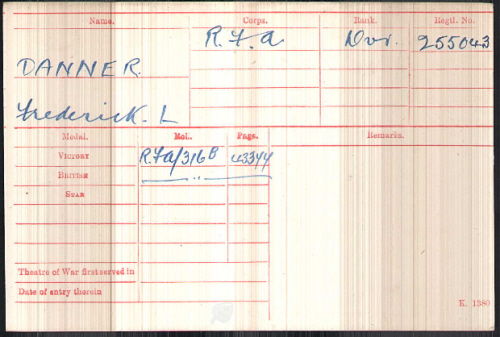 Name. Corps. Rank. Regtl. No.
R.F.A Dvr. 255043
DANNER.
Frederick. L
Medal. Roll. Page. Remarks.
Victory R.F.A/316B 43344
British — " —
Star
Theatre of War first served in
Date of entry therein
K. 1380